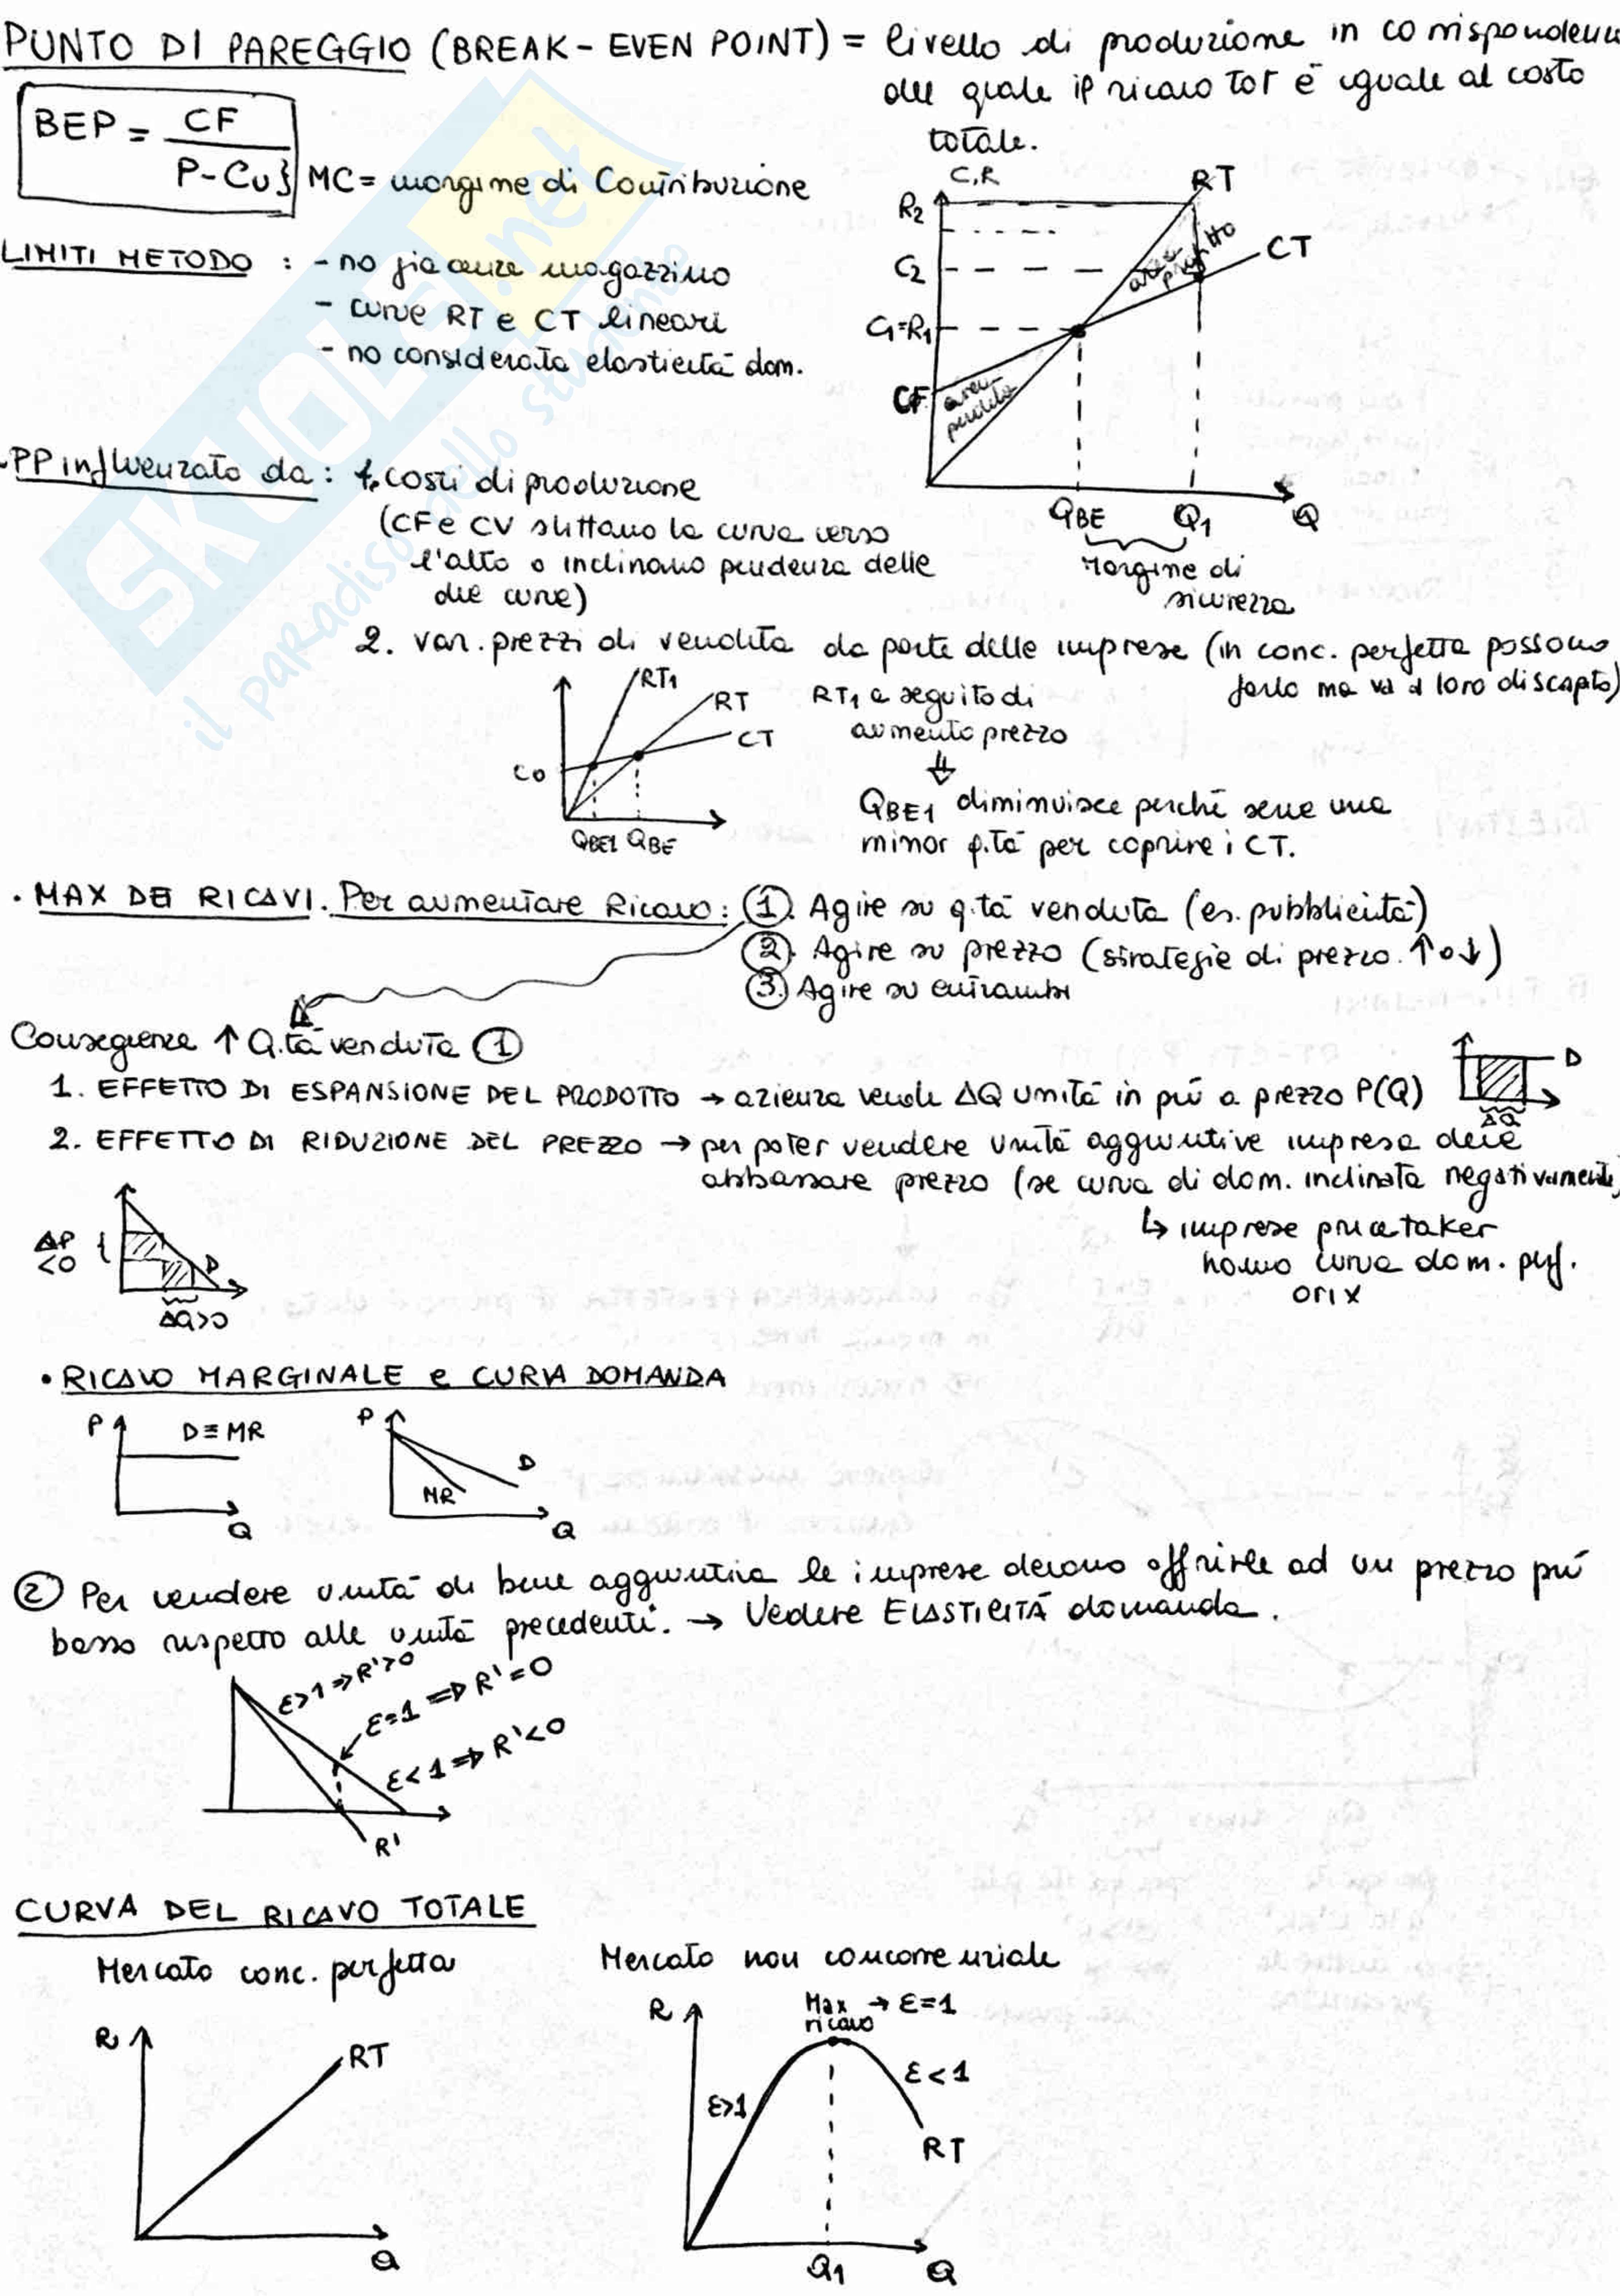 PUNTO DI PAREGGIO (BREAK-EVEN POINT) = livello di produzione in corrispondenza
del quale il ricavo tot è uguale al costo
totale.
BEP = CF
P-Cu} MC = margine di Contribuzione
LIMITI METODO : - no giacenze magazzino
- curve RT e CT lineari
- no considerata elasticità dom.
C,R
R2
C2
C1=R1
CF
RT
CT
area profitto
area perdita
QBE Q1 Q
Margine di
sicurezza
PP influenzato da : 1. costi di produzione
(CF e CV slittano la curva verso
l'alto o inclinano pendenza delle
due curve)
2. var. prezzi di vendita da parte delle imprese (in conc. perfetta possono
farlo ma va a loro discapito)
RT1
RT
CT
C0
QBE1 QBE
RT1 a seguito di
aumento prezzo
⇓
QBE1 diminuisce perchè serve una
minor q.tà per coprire i CT.
· MAX DEI RICAVI. Per aumentare Ricavo : ① Agire su q.tà venduta (es. pubblicità)
② Agire su prezzo (strategie di prezzo ↑ o ↓)
③ Agire su entrambi
Conseguenze ↑ Q.tà venduta ①
1. EFFETTO DI ESPANSIONE DEL PRODOTTO → azienza vende ΔQ unità in più a prezzo P(Q)
D
ΔQ
2. EFFETTO DI RIDUZIONE DEL PREZZO → per poter vendere unità aggiuntive impresa deve
abbassare prezzo (se curva di dom. inclinata negativamente)
↳ imprese price taker
hanno curva dom. perf.
orix
ΔP
<0
D
ΔQ>0
• RICAVO MARGINALE e CURVA DOMANDA
P
D≡MR
Q
P
D
MR
Q
② Per vendere unità di bene aggiuntiva le imprese devono offrirle ad un prezzo più
basso rispetto alle unità precedenti. → Vedere ELASTICITÀ domanda.
ε>1 ⇒ R'>0
ε=1 ⇒ R'=0
ε<1 ⇒ R'<0
R'
CURVA DEL RICAVO TOTALE
Mercato conc. perfetta
Mercato non concorrenziale
R
RT
Q
R
Max → ε=1
ricavo
ε>1
ε<1
RT
Q1
Q
SKUOLA.net
il paradiso dello studente